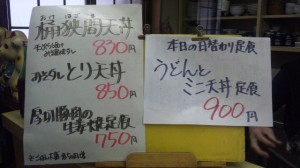 桶狭間天丼
890円
おろしとり天丼
850円
厚切豚肉の
生姜焼定食
750円
本日の日替わり定食
うどんと
ミニ天丼定食
900円